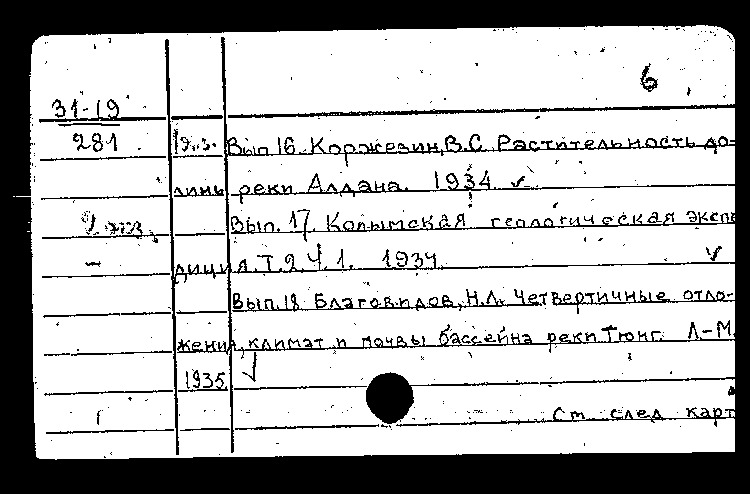 6
31-19
281 1э. Вып 16. Коржевин, В.С. Растительность до-
лины реки Алдана. 1934 ✓
2 экз. Вып. 17. Колымская геологическая экспе
диция. Т. 2. Ч. 1. 1934. ✓
Вып. 18 Благовидов, Н.Л. Четвертичные отло-
жения, климат и почвы бассейна реки Тюнг. Л-М.
1935. ✓
См. след карт